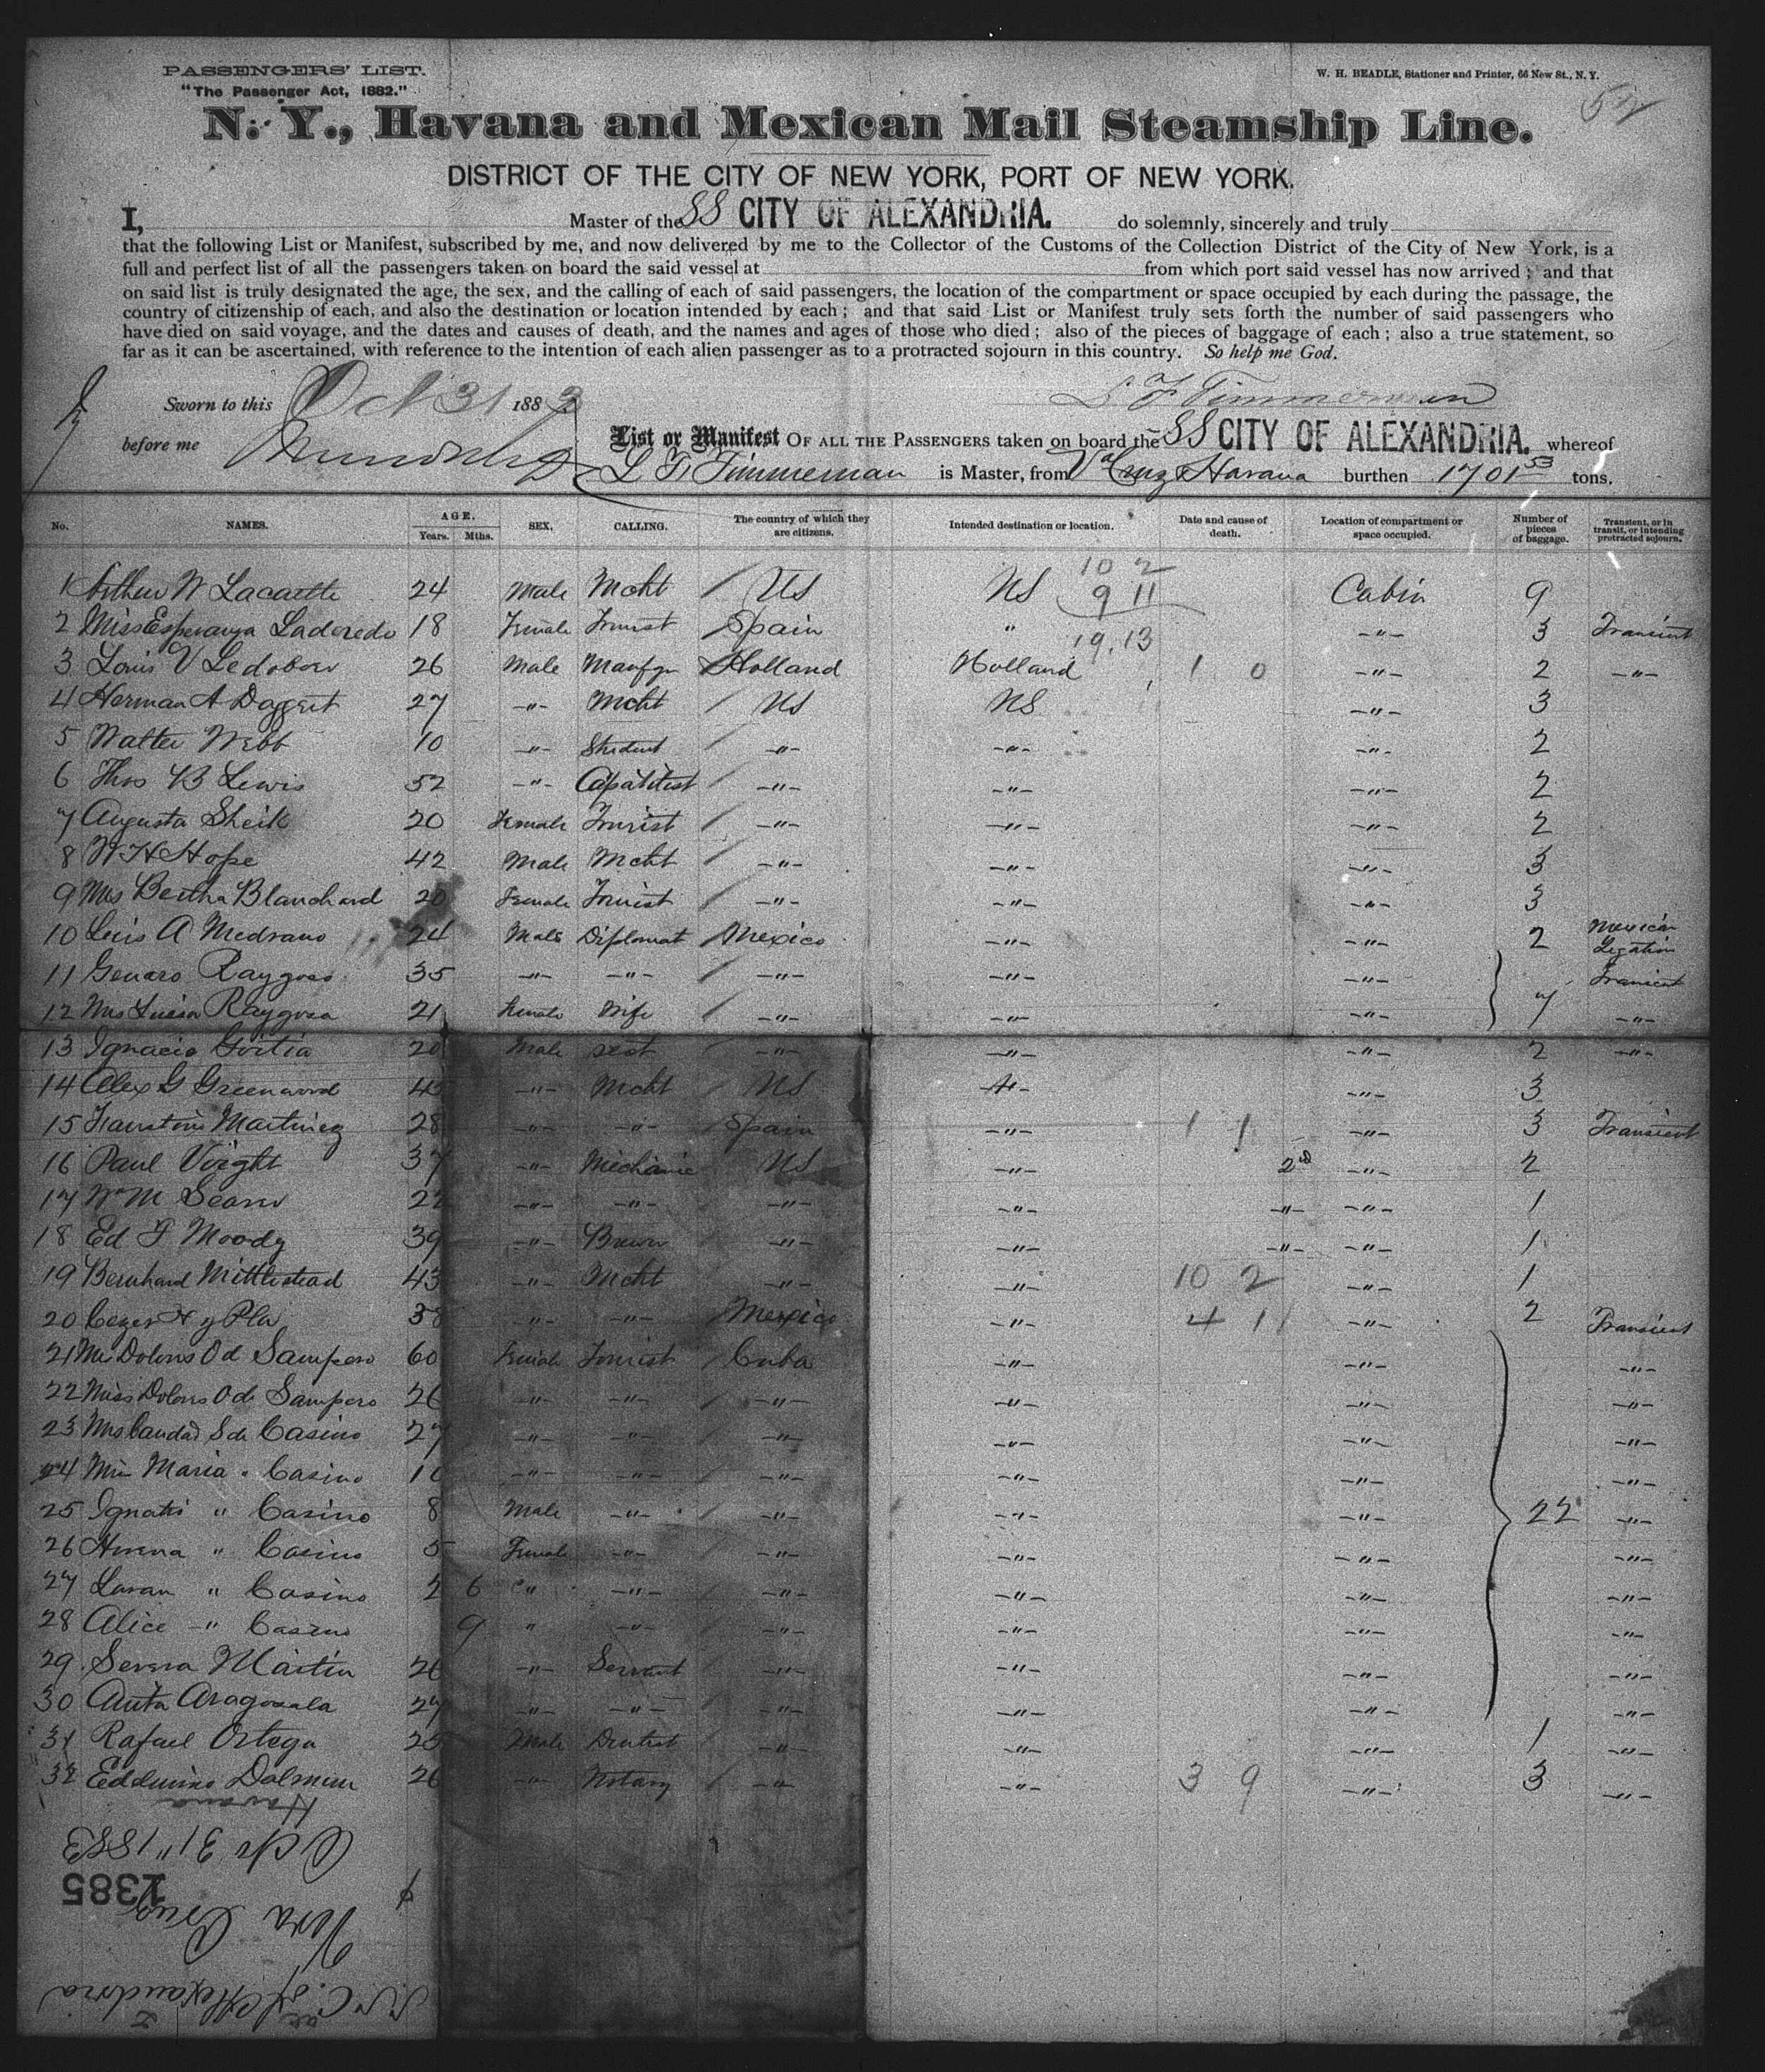 PASSENGERS' LIST.
"The Passenger Act, 1882."
W. H. BEADLE, Stationer and Printer, 66 New St., N. Y.
N. Y., Havana and Mexican Mail Steamship Line.
DISTRICT OF THE CITY OF NEW YORK, PORT OF NEW YORK.
I, Master of the SS CITY OF ALEXANDRIA. do solemnly, sincerely and truly
that the following List or Manifest, subscribed by me, and now delivered by me to the Collector of the Customs of the Collection District of the City of New York, is a
full and perfect list of all the passengers taken on board the said vessel at from which port said vessel has now arrived; and that
on said list is truly designated the age, the sex, and the calling of each of said passengers, the location of the compartment or space occupied by each during the passage, the
country of citizenship of each, and also the destination or location intended by each; and that said List or Manifest truly sets forth the number of said passengers who
have died on said voyage, and the dates and causes of death, and the names and ages of those who died; also of the pieces of baggage of each; also a true statement, so
far as it can be ascertained, with reference to the intention of each alien passenger as to a protracted sojourn in this country. So help me God.
Sworn to this Oct 31 1883 L F Timmerman
before me
List or Manifest OF ALL THE PASSENGERS taken on board the SS CITY OF ALEXANDRIA. whereof
L F Timmerman is Master, from V a Cruz & Havana burthen 1701 53 tons.
No. NAMES. AGE. Years. Mths. SEX. CALLING. The country of which they are citizens. Intended destination or location. Date and cause of death. Location of compartment or space occupied. Number of pieces of baggage. Transient, or in transit, or intending protracted sojourn.
10 2
9 11
19.13
1 Arthur W 24 Male Mcht US US Cabin 9
2 Miss Esperanza Laderedo 18 Female Tourist Spain " -"- 3 Transient
3 Louis V Ledoboer 26 Male Manfgr Holland Holland 1 0 -"- 2 -"-
4 Herman A Daggett 27 -"- Mcht US US -"- 3
5 Walter Webb 10 -"- Student -"- -"- -"- 2
6 Thos B Lewis 52 -"- Capatitest -"- -"- -"- 2
7 Augusta Sheik 20 Female Tourist -"- -"- -"- 2
8 W H Hope 42 Male Mcht -"- -"- -"- 3
9 Mrs Bertha Blanchard 20 Female Tourist -"- -"- -"- 3
10 Luis A Medrano 24 Male Diplomat Mexico -"- -"- 2 Mexican Legation
11 Genaro Raygosa 35 -"- -"- -"- -"- -"- Transient
12 Mrs Luisa Raygosa 21 Female Wife -"- -"- -"- 7 -"-
13 Ignacio Goitia 20 Male sect -"- -"- -"- 2 -"-
14 Alex G Greenwood 43 -"- Mcht US -"- -"- 3
15 Faustino Martinez 28 -"- -"- Spain -"- 1 1 -"- 3 Transient
16 Paul Voight 37 -"- Michanic US -"- 2nd -"- 2
17 Wm M 22 -"- -"- -"- -"- -"- -"- 1
18 Ed F Moody 39 -"- Brewer -"- -"- -"- -"- 1
19 Bernhard Mittlestead 43 -"- Mcht -"- -"- 10 2 -"- 1
20 y Pla 38 -"- -"- Mexico -"- 4 11 -"- 2 Transient
21 Mrs Dolores O de Sampero 60 Female Tourist Cuba -"- -"- -"-
22 Miss Dolores O de Sampero 26 -"- -"- -"- -"- -"- -"-
23 Mrs S de Casino 27 -"- -"- -"- -"- -"- -"-
24 Miss Maria " Casino 10 -"- -"- -"- -"- -"- -"-
25 " Casino 8 Male -"- -"- -"- -"- 22 -"-
26 " Casino 5 Female -"- -"- -"- -"- -"-
27 " Casino 2 6 " -"- -"- -"- -"- -"-
28 Alice -"- Casino 9 " -"- -"- -"- -"- -"-
29 Severa Martin 26 -"- Servant -"- -"- -"- -"-
30 Anita 27 -"- -"- -"- -"- -"- -"-
31 Rafael Ortega 25 Male Dentist -"- -"- -"- 1 -"-
32 26 -"- Notary -"- -"- 3 9 -"- 3 -"-
Havana
31" 1883
1385
Vera Cruz
C. of Alexandria